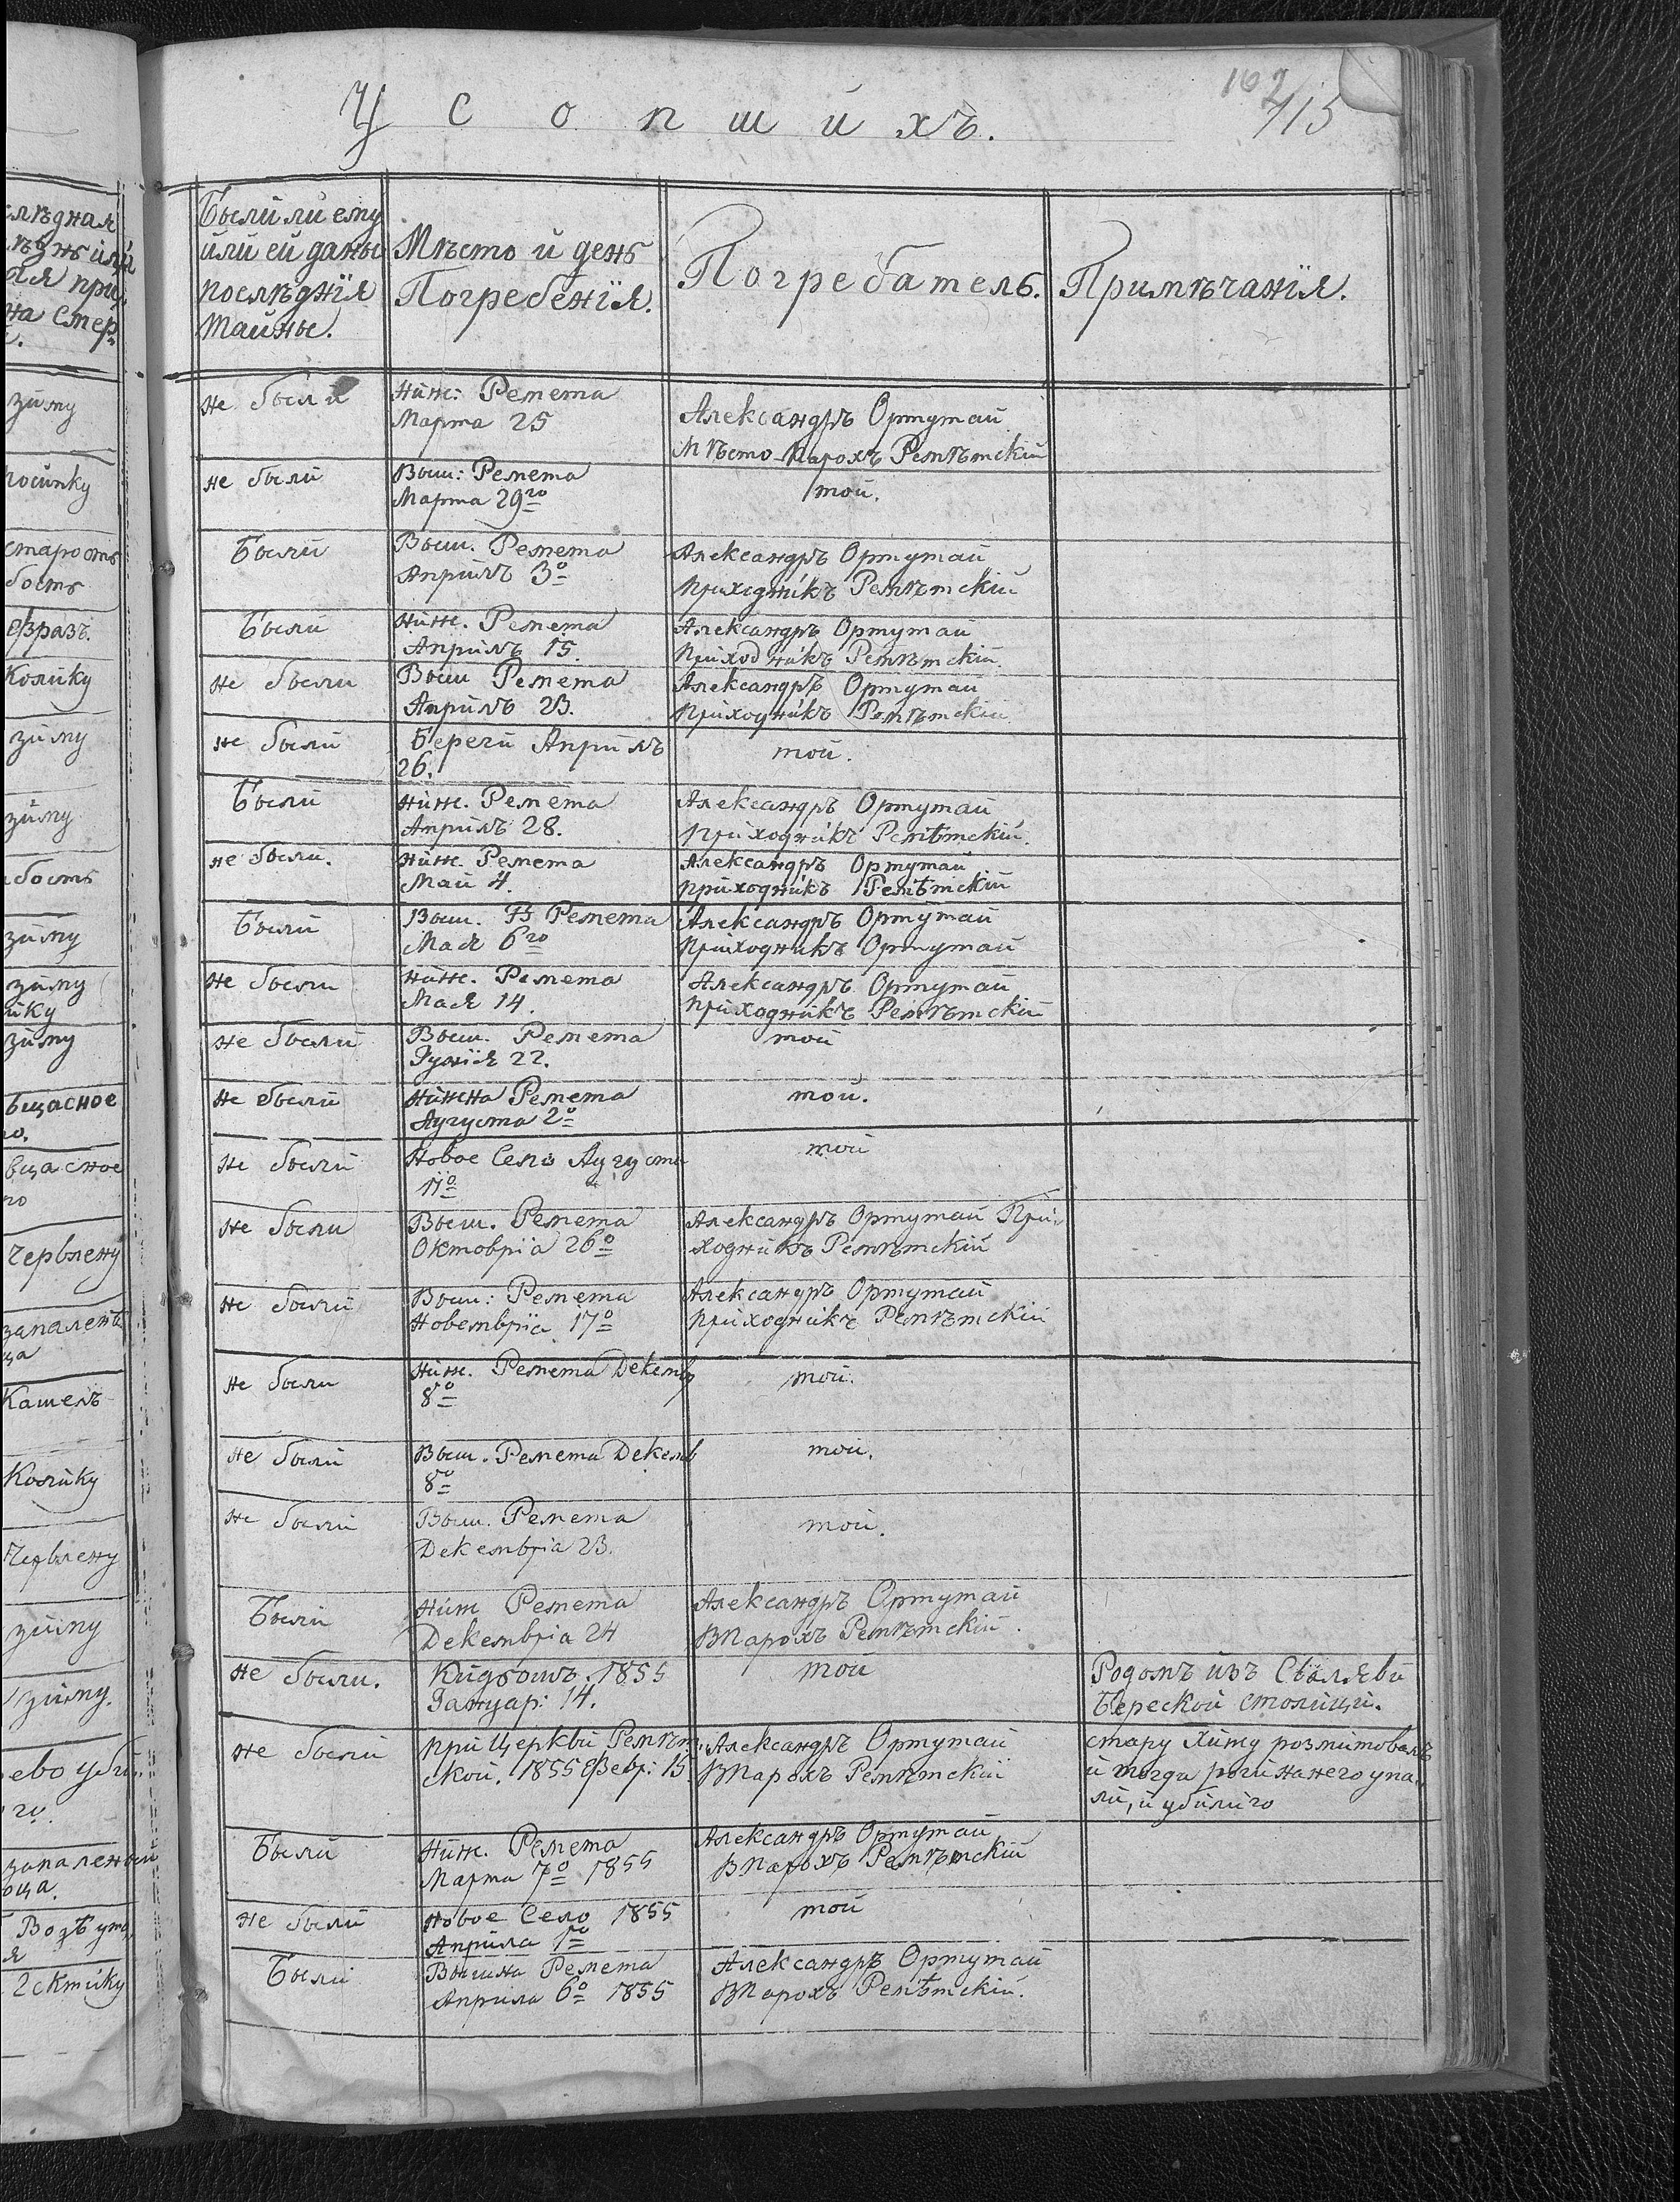 Усопшихъ.
102
415
Были ли ему
или ей даны
послѣднія
тайны.
Мѣсто и день
Погребенія.
Погребатель.
Примѣчанія.
Не были
Ниж: Ремета
Марта 25
Александръ Ортутай
Мѣсто-Парохъ Ремѣтскій
не были
Выш: Ремета
Марта 29го
той.
Были
Выш. Ремета
Априлъ 3о
Александръ Ортутай
Приходникъ Ремѣтскій
Были
Ниж. Ремета
Априлъ 15.
Александръ Ортутай
Приходникъ Ремѣтскій
не были
Выш Ремета
Априлъ 23.
Александръ Ортутай
Приходникъ Ремѣтскій
не были
Береги Априлъ
26.
той.
Были
Ниж. Ремета
Априлъ 28.
Александръ Ортутай
Приходникъ Ремѣтскій.
не были.
Ниж. Ремета
Май 4.
Александръ Ортутай
приходникъ Ремѣтскій
Были
Выш. В Ремета
Мая 6го
Александръ Ортутай
Приходникъ Ортутай
Не были
Ниж. Ремета
Мая 14.
Александръ Ортутай
приходникъ Ремѣтскій
не были
Выш. Ремета
Іунія 22.
той
не были
Нижна Ремета
Аугуста 2о
той.
Не были
Новое Село Аугуста
11о
той
Не были
Выш. Ремета
Октовріа 26о
Александръ Ортутай При-
ходникъ Ремѣтскій
не были
Выш: Ремета
Новемвріа 17о
Александръ Ортутай
приходникъ Ремѣтскій
Не были
Ниж. Ремета Декемв
8о
той.
Не были
Выш. Ремета Декемв
8о
той.
Не были
Выш. Ремета
Декемвріа 23.
той.
Были
Ниж Ремета
Декемвріа 24
Александръ Ортутай
ВПарохъ Ремѣтскій.
Не были.
Кидьошъ. 1855
Януар: 14.
той
Родомъ изъ Сваляви
Берескои столици.
Не были
при Церкви Ремѣт-
ской. 1855 Февр: 15.
Александръ Ортутай
ВПарохъ Ремѣтскій
стару хижу розмитовалъ
и тогда роги на него упа-
ли, и убили го
Были
Ниж. Ремета
Марта 7о 1855
Александръ Ортутай
ВПарохъ Ремѣтскій
Не были
Новое Село 1855
Априла 1о
той
Были
Вышна Ремета
Априла 6о 1855
Александръ Ортутай
ВПарохъ Ремѣтскій.
зиму
старость
Колику
зиму
зиму
зиму
зиму
зиму
Червлену
Кашель
Колику
Червлену
зиму
зиму.